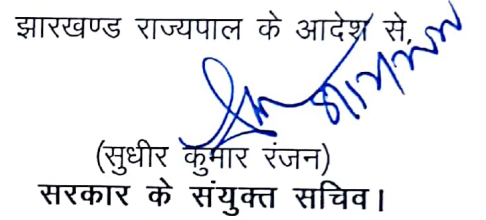 झारखण्ड राज्यपाल के आदेश से,
(सुधीर कुमार रंजन)
सरकार के संयुक्त सचिव।